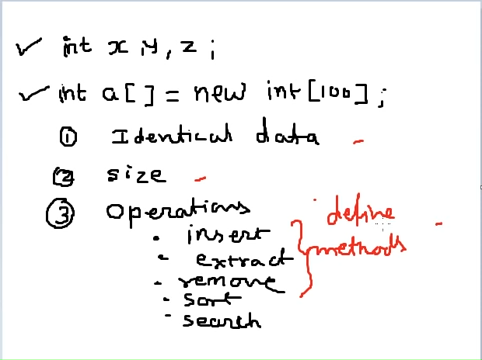 ✓ int x, y, z;
✓ int a[] = new int[100];
① Identical data -
② size -
③ operations
• insert
• extract
• remove
• sort
• search
define -
methods